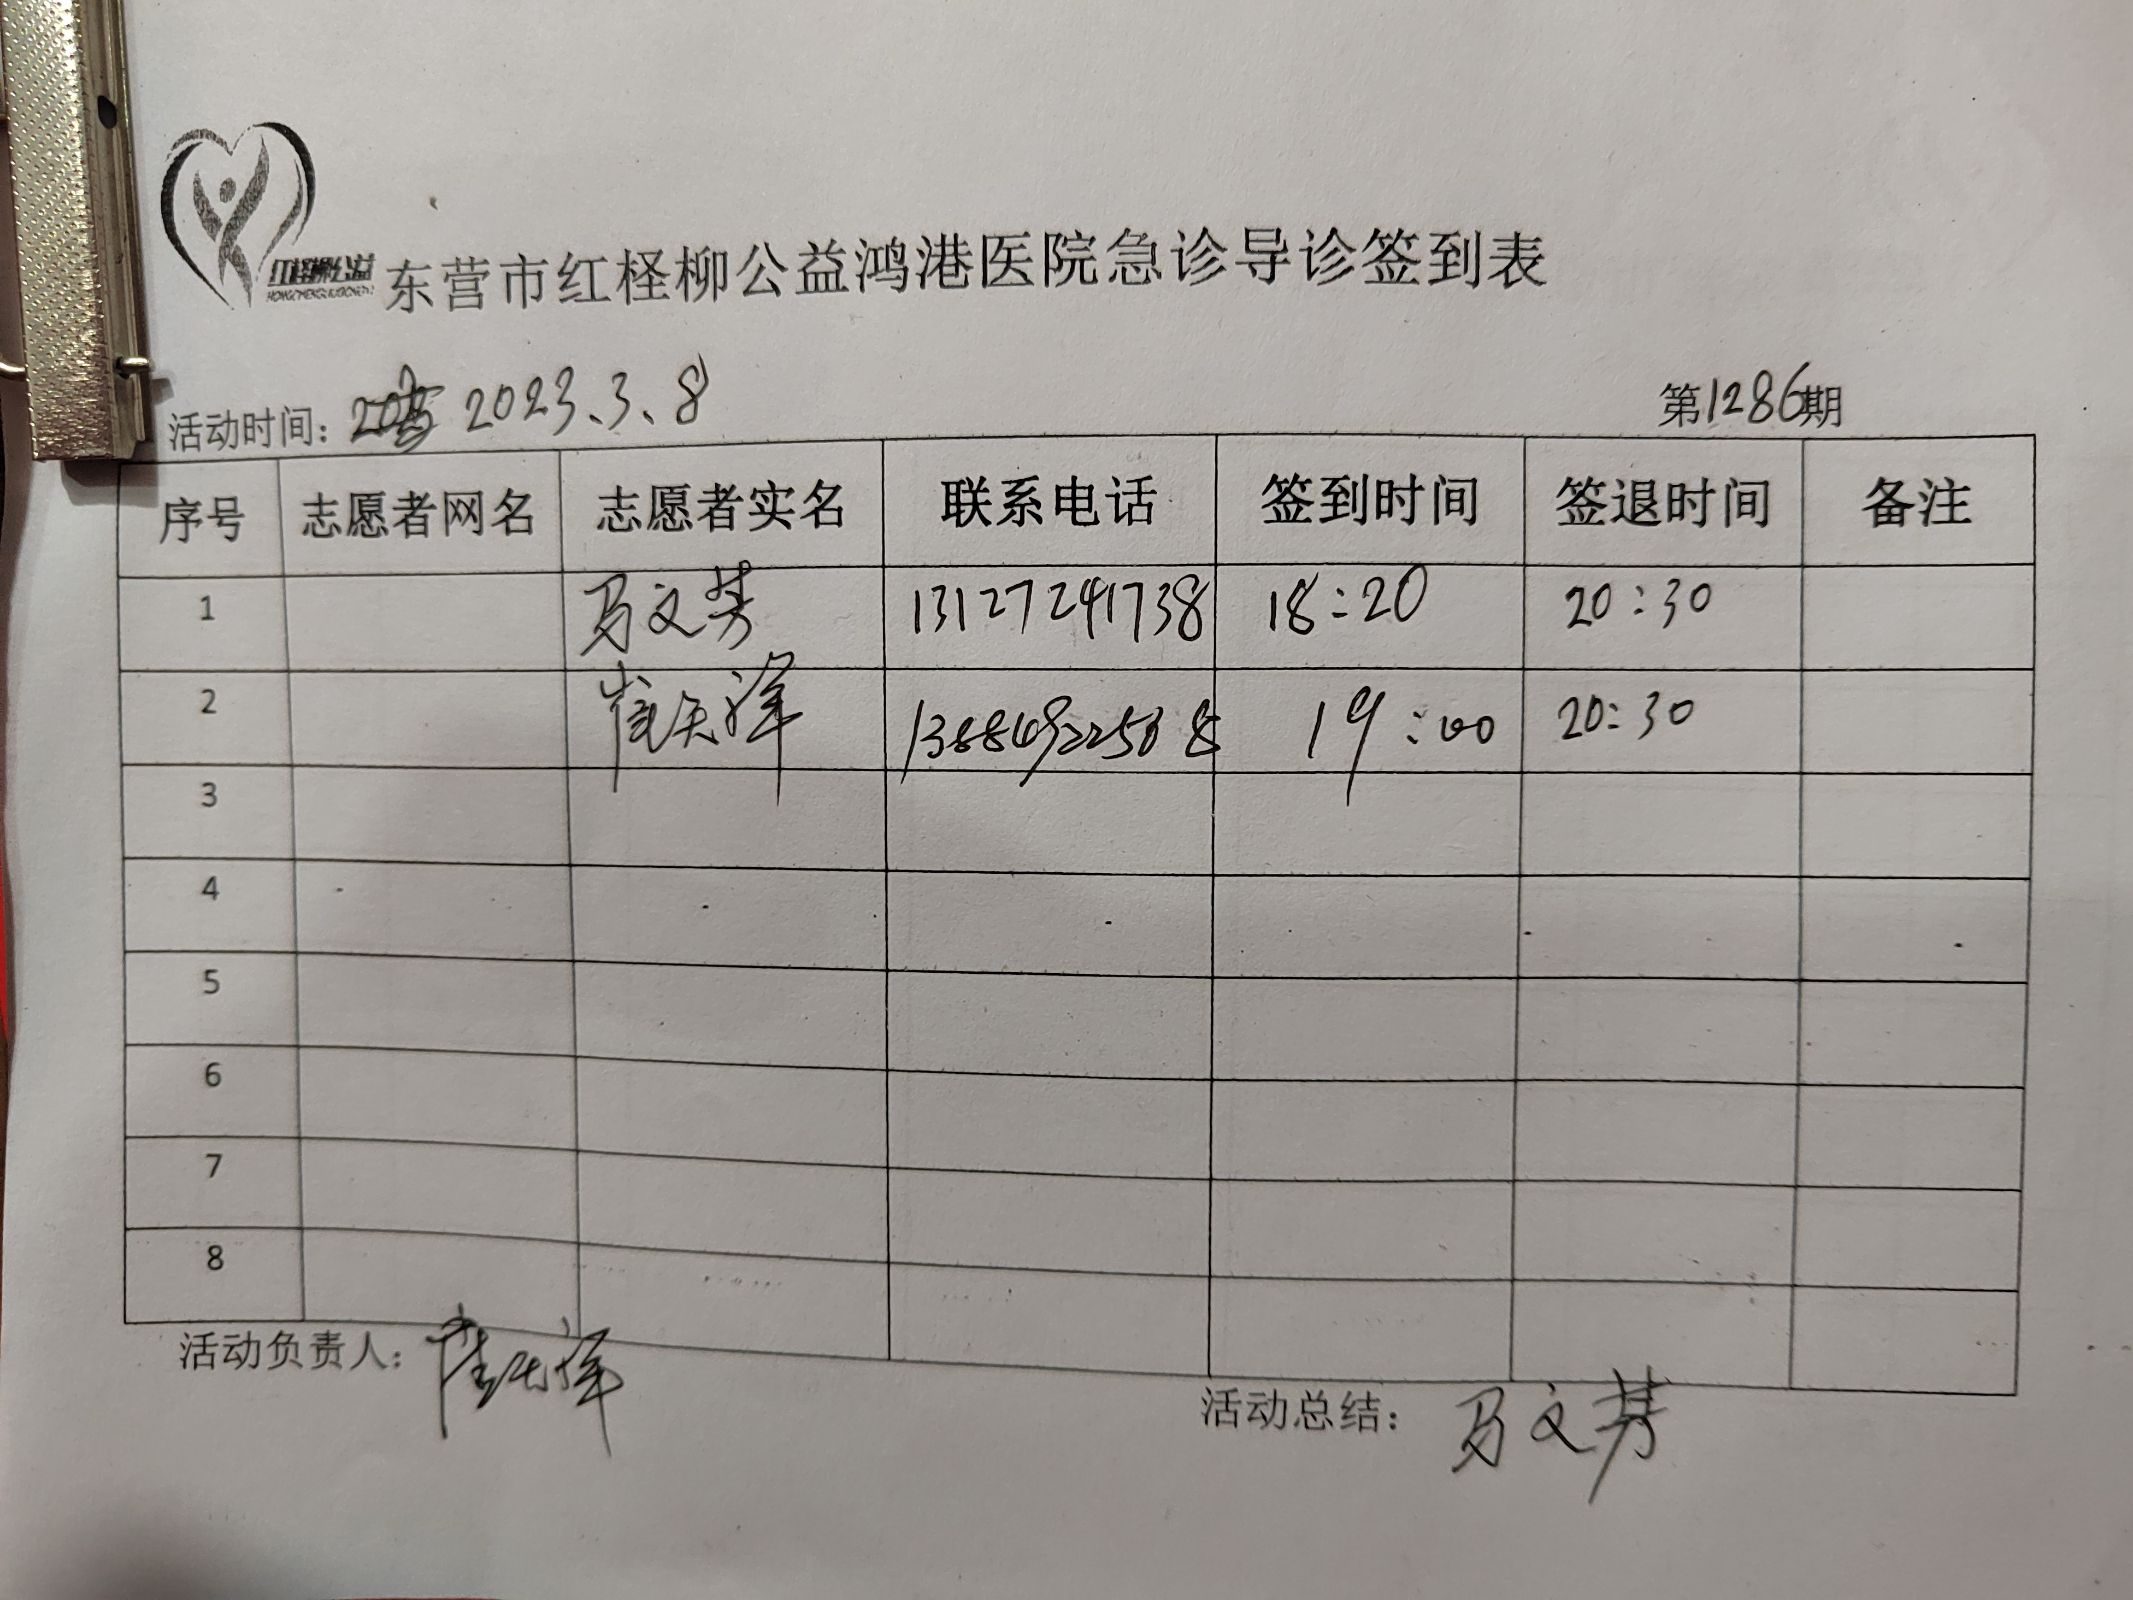 红柽柳公益
东营市红柽柳公益鸿港医院急诊导诊签到表
活动时间: 2023.3.8 第1286期
序号 志愿者网名 志愿者实名 联系电话 签到时间 签退时间 备注
1 马文芳 13127241738 18:20 20:30
2 崔天泽 19:00 20:30
3
4
5
6
7
8
活动负责人:
活动总结: 马文芳